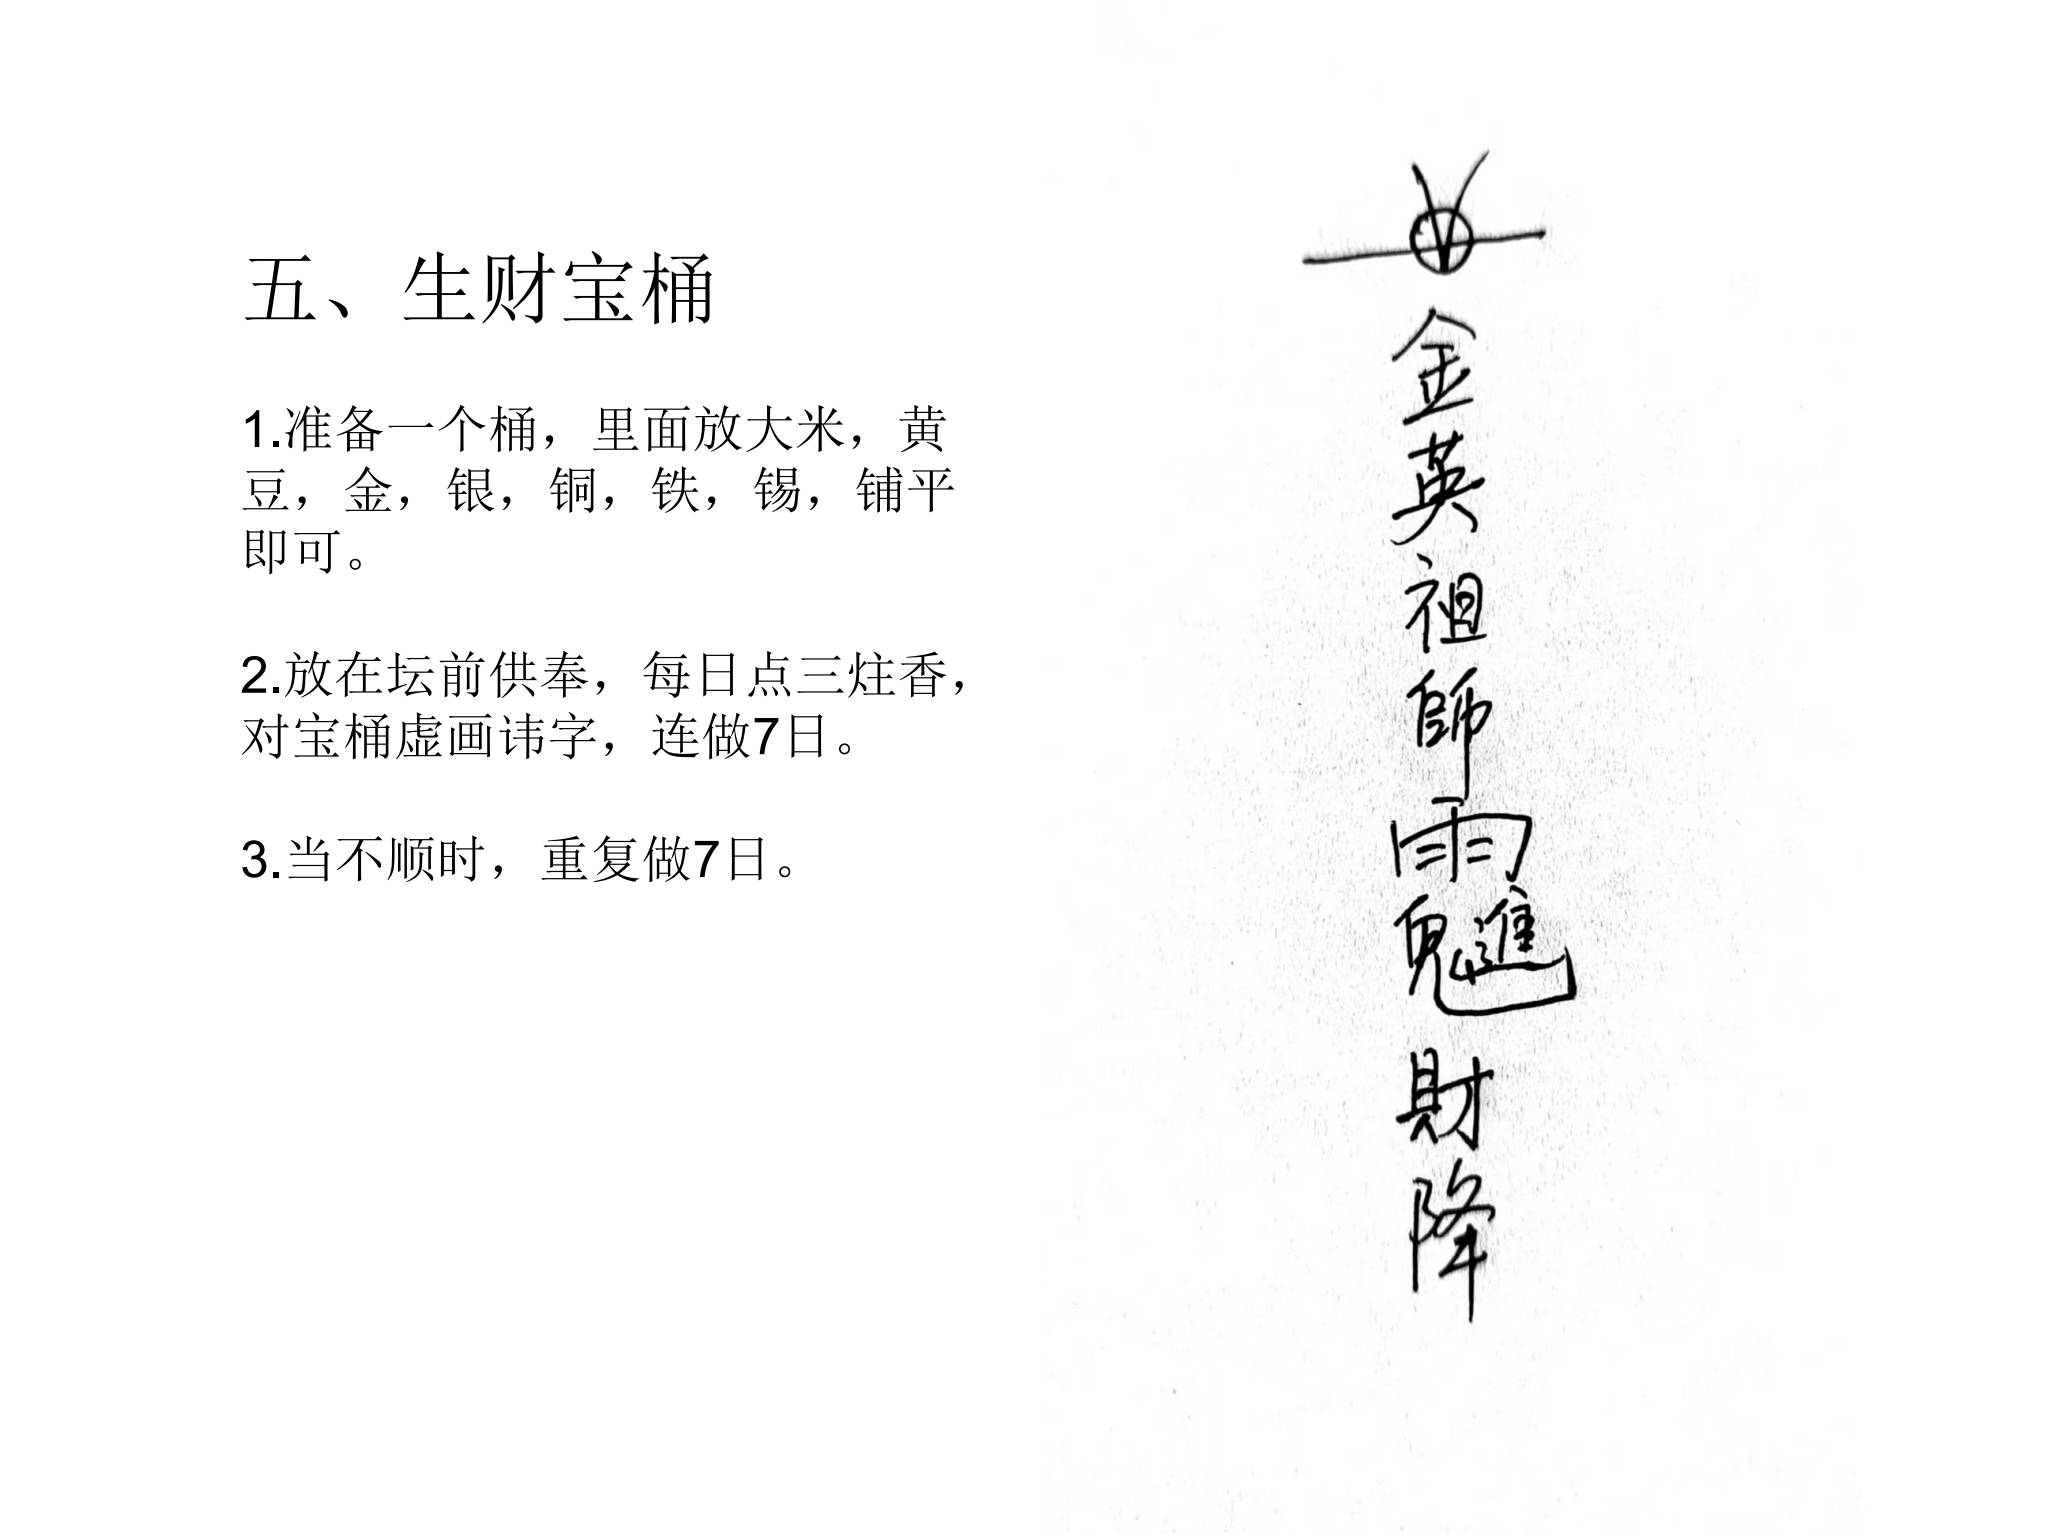 五、生财宝桶
1.准备一个桶，里面放大米，黄
豆，金，银，铜，铁，锡，铺平
即可。
2.放在坛前供奉，每日点三炷香，
对宝桶虚画讳字，连做7日。
3.当不顺时，重复做7日。
金
英
祖
師
雨
進
財
降